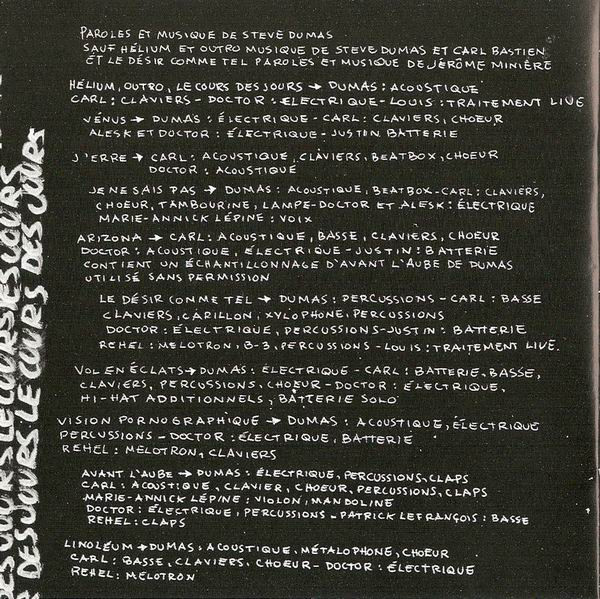 PAROLES ET MUSIQUE DE STEVE DUMAS
SAUF HÉLIUM ET OUTRO MUSIQUE DE STEVE DUMAS ET CARL BASTIEN
ET LE DÉSIR COMME TEL PAROLES ET MUSIQUE DE JÉRÔME MINIÈRE
HÉLIUM, OUTRO, LE COURS DES JOURS → DUMAS: ACOUSTIQUE
CARL: CLAVIERS - DOCTOR: ÉLECTRIQUE - LOUIS: TRAITEMENT LIVE
VÉNUS → DUMAS: ÉLECTRIQUE - CARL: CLAVIERS, CHOEUR
ALESK ET DOCTOR: ÉLECTRIQUE - JUSTIN BATTERIE
J'ERRE → CARL: ACOUSTIQUE, CLAVIERS, BEATBOX, CHOEUR
DOCTOR: ACOUSTIQUE
JE NE SAIS PAS → DUMAS: ACOUSTIQUE, BEATBOX - CARL: CLAVIERS,
CHOEUR, TAMBOURINE, LAMPE - DOCTOR ET ALESK: ÉLECTRIQUE
MARIE-ANNICK LÉPINE: VOIX
ARIZONA → CARL: ACOUSTIQUE, BASSE, CLAVIERS, CHOEUR
DOCTOR: ACOUSTIQUE, ÉLECTRIQUE - JUSTIN: BATTERIE
CONTIENT UN ÉCHANTILLONNAGE D'AVANT L'AUBE DE DUMAS
UTILISÉ SANS PERMISSION
LE DÉSIR COMME TEL → DUMAS: PERCUSSIONS - CARL: BASSE
CLAVIERS, CARILLON, XYLOPHONE, PERCUSSIONS
DOCTOR: ÉLECTRIQUE, PERCUSSIONS - JUSTIN: BATTERIE
REHEL: MELOTRON, B-3, PERCUSSIONS - LOUIS: TRAITEMENT LIVE.
VOL EN ÉCLATS → DUMAS: ÉLECTRIQUE - CARL: BATTERIE, BASSE,
CLAVIERS, PERCUSSIONS, CHOEUR - DOCTOR: ÉLECTRIQUE,
HI-HAT ADDITIONNELS, BATTERIE SOLO
VISION PORNOGRAPHIQUE → DUMAS: ACOUSTIQUE, ÉLECTRIQUE
PERCUSSIONS - DOCTOR: ÉLECTRIQUE, BATTERIE
REHEL: MELOTRON, CLAVIERS
AVANT L'AUBE → DUMAS: ÉLECTRIQUE, PERCUSSIONS, CLAPS
CARL: ACOUSTIQUE, CLAVIER, CHOEUR, PERCUSSIONS, CLAPS
MARIE-ANNICK LÉPINE: VIOLON, MANDOLINE
DOCTOR: ÉLECTRIQUE, PERCUSSIONS - PATRICK LEFRANÇOIS: BASSE
REHEL: CLAPS
LINOLÉUM → DUMAS: ACOUSTIQUE, MÉTALOPHONE, CHOEUR
CARL: BASSE, CLAVIERS, CHOEUR - DOCTOR: ÉLECTRIQUE
REHEL: MELOTRON
DES JOURS LE COURS DES JOURS